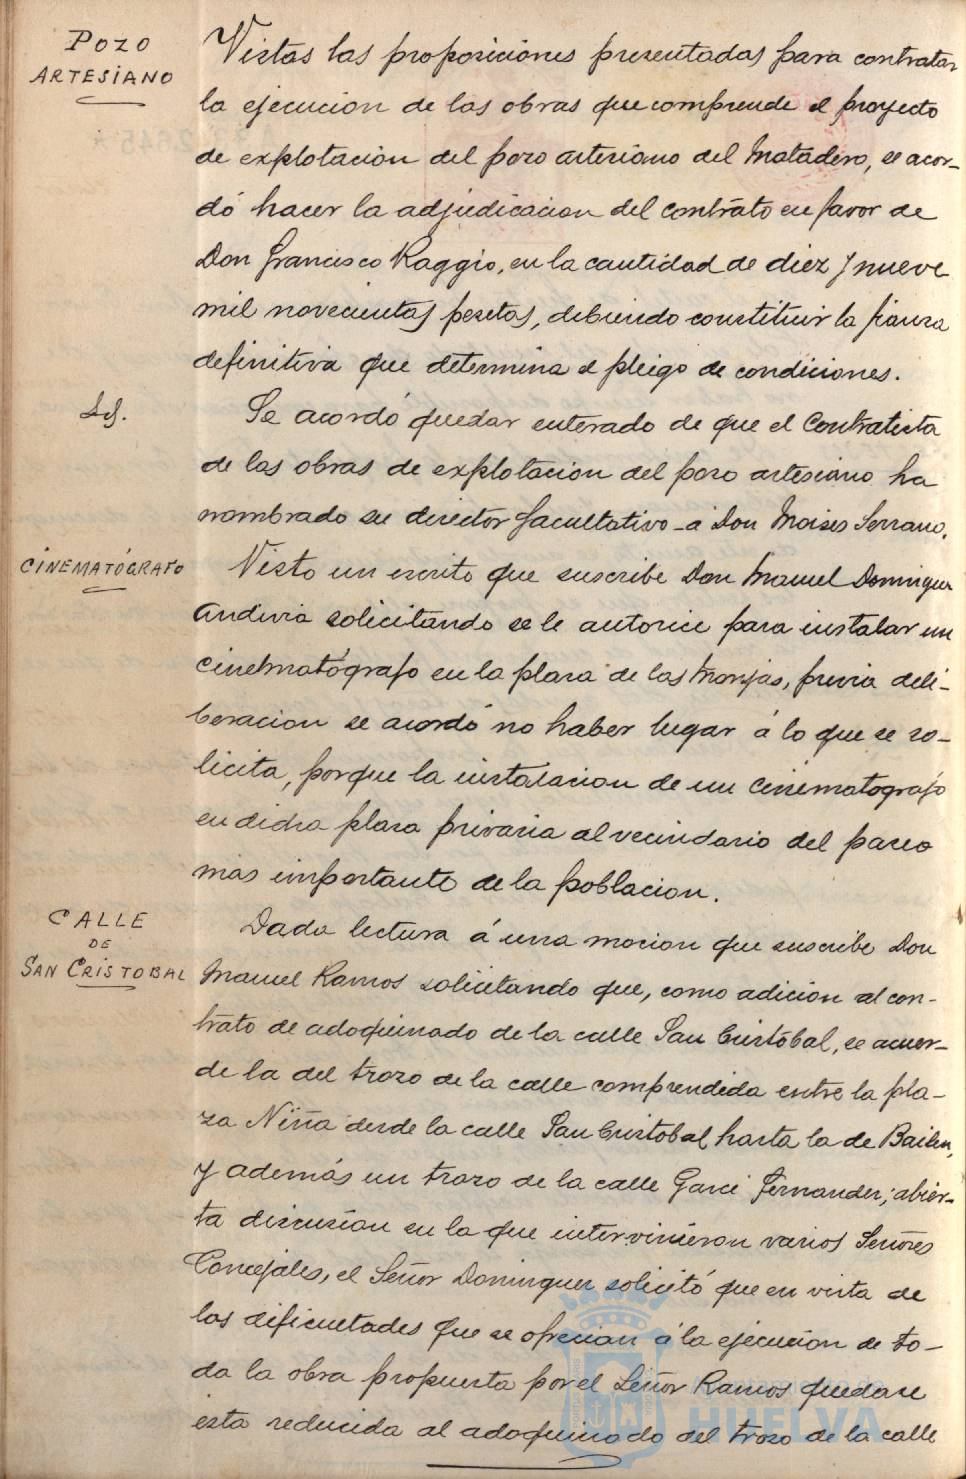 POZO
ARTESIANO
Vistas las proposiciones presentadas para contratar
la ejecucion de las obras que comprende el proyecto
de explotacion del pozo artesiano del Matadero, se acor-
dó hacer la adjudicacion del contrato en favor de
Don Francisco Raggio, en la cantidad de diez y nueve
mil novecientas pesetas, debiendo constituir la fianza
definitiva que determina el pliego de condiciones.
Id.
Se acordó quedar enterado de que el Contratista
de las obras de explotacion del pozo artesiano ha
nombrado su director facultativo á Don Moises Serrano.
CINEMATÓGRAFO
Visto un escrito que suscribe Don Manuel Dominguez
Andivia solicitando se le autorice para instalar un
cinematógrafo en la plaza de las Monjas, previa deli-
beracion se acordó no haber lugar á lo que se so-
licita, porque la instalacion de un cinematografo
en dicha plaza privaria al vecindario del paseo
mas importante de la poblacion.
CALLE
DE
SAN CRISTOBAL
Dada lectura á una mocion que suscribe Don
Manuel Ramos solicitando que, como adición al con-
trato de adoquinado de la calle San Cristóbal, se acuer-
de la del trozo de la calle comprendida entre la pla-
za Niña desde la calle San Cristobal hasta la de Bailen,
y además un trozo de la calle Garci Fernandez; abier-
ta discusion en la que intervinieron varios Señores
Concejales, el Señor Dominguez solicitó que en vista de
las dificultades que se ofrecian á la ejecución de to-
da la obra propuesta por el Señor Ramos quedase
esta reducida al adoquinado del trozo de la calle
Ayuntamiento de
HUELVA